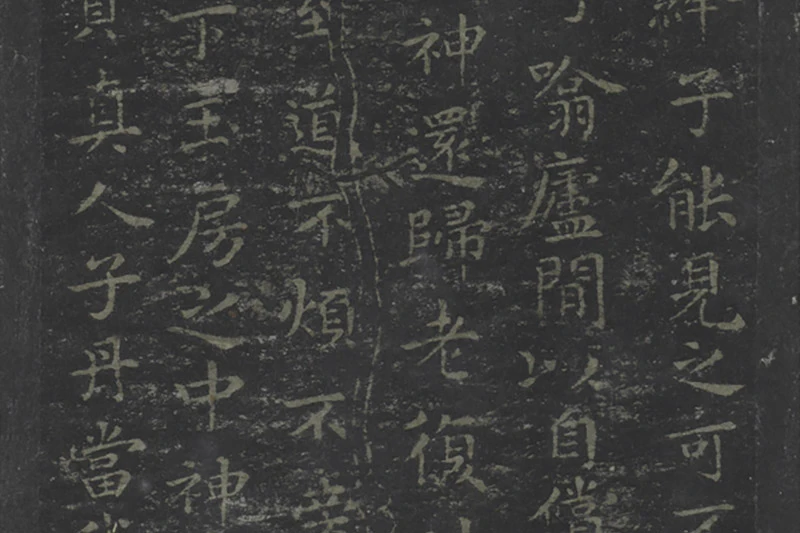 子能見之可
噏廬間以自償
神還歸老復
至道不煩不旁
下玉房之中神
真人子丹當